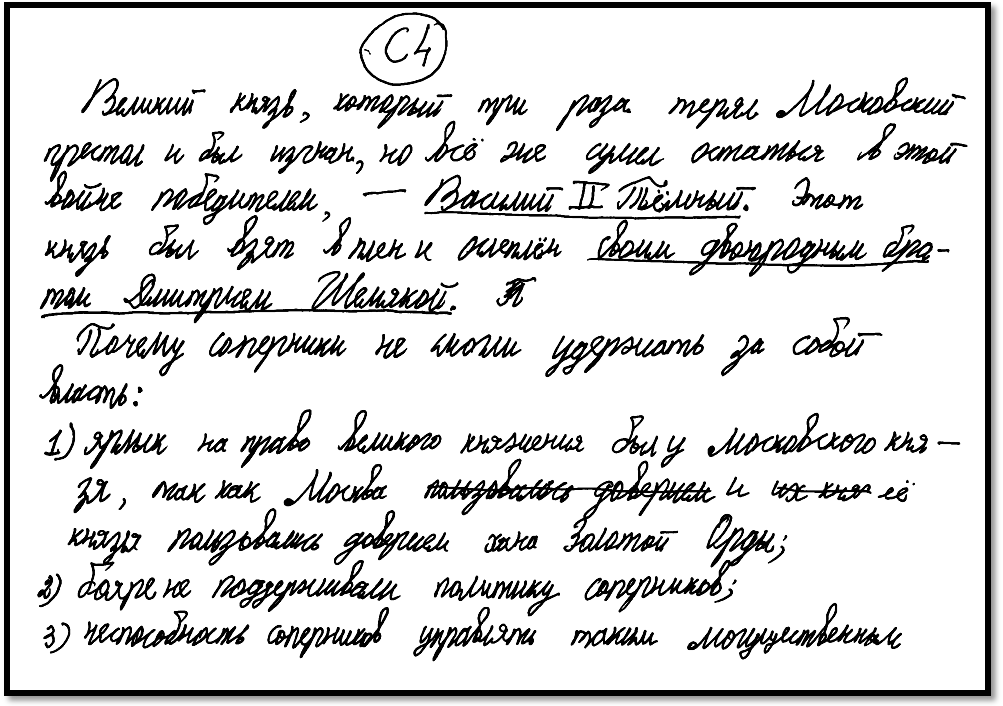 С4
Великий князь, который три раза терял Московский
престол и был изгнан, но всё же сумел остаться в этой
войне победителем, — Василий II Тёмный. Этот
князь был взят в плен и ослеплён своим двоюродным бра-
том Дмитрием Шемякой.
Почему соперники не смогли удержать за собой
власть:
1) ярлык на право великого княжения был у Московского кня-
зя, так как Москва пользовалась доверием и их княз её
князья пользовались доверием хана Золотой Орды;
2) бояре не поддерживали политику соперников;
3) неспособность соперников управлять таким могущественным